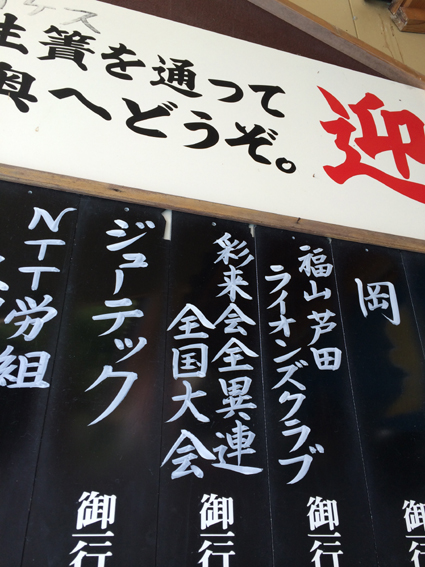 迎
生簀を通って
奥へどうぞ。
岡
御一行
福山芦田
ライオンズクラブ
御一行
彩来会全異連
全国大会
御一行
ジューテック
御一行
NTT労組